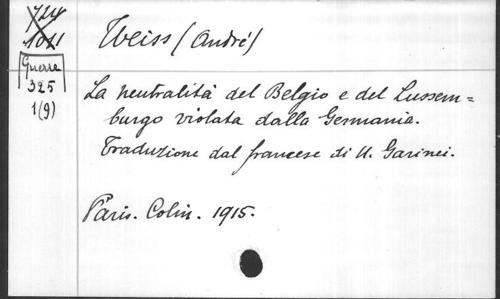 724
1011
Guerre
325
1(9)
Weiss (André)
La neutralità del Belgio e del Lussem=
burgo violata dalla Germania.
Traduzione dal francese di U. Garinei.
Paris. Colin. 1915.